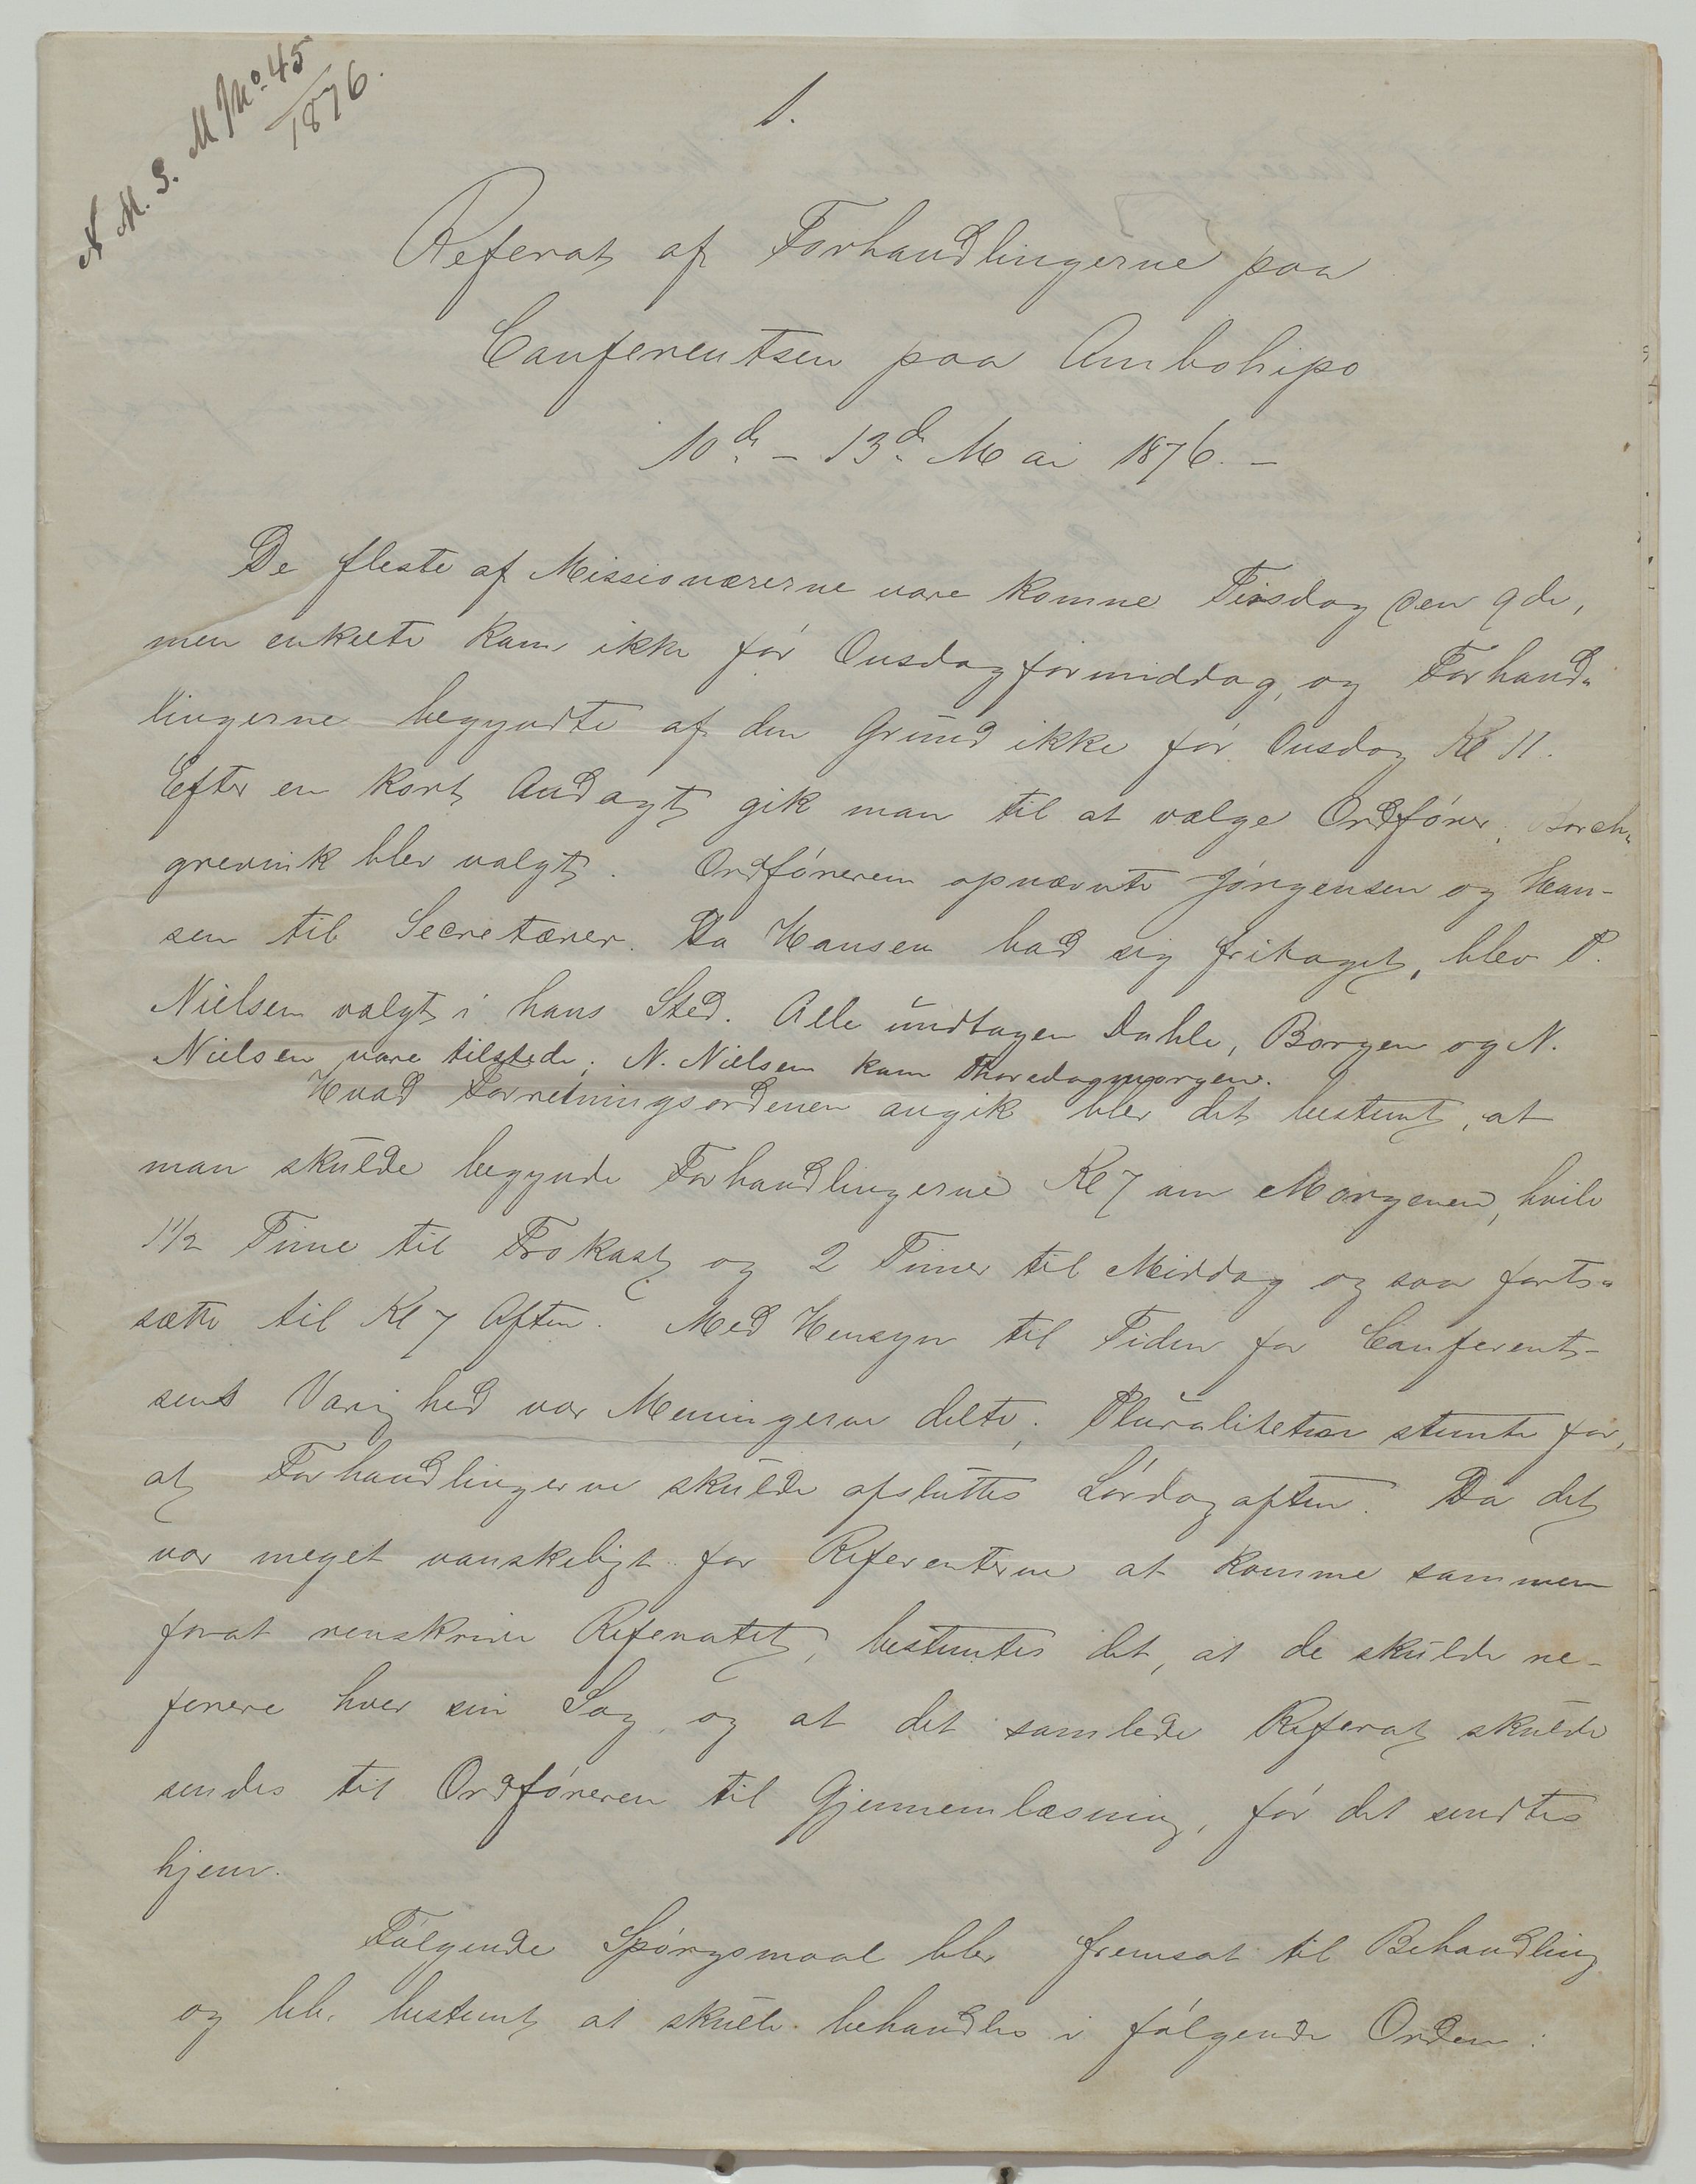 N. M. S. M No. 45
1876.
1.
Referat af Forhandlingerne paa
Conferentsen paa Ambohipo
10de – 13de Mai 1876. –
De fleste af Missionærerne vare komne Tirsdag den 9de,
men enkelte kom ikke før Onsdagformiddag, og Forhand-
lingerne begyndte af den Grund ikke før Onsdag Kl 11.
Efter en kort Andagt gik man til at vælge Ordfører, Borch-
grevink blev valgt. Ordføreren opnævnte Jørgensen og Han-
sen til Secretærer. Da Hansen bad sig fritaget, blev P.
Nielsen valgt i hans Sted. Alle undtagen Dahle, Borgen og N.
Nielsen vare tilstede; N. Nielsen kom Thorsdagmorgen.
Hvad Forretningsordenen angik blev det bestemt, at
man skulde begynde Forhandlingerne Kl 7 om Morgenen, hvile
1 1/2 Time til Frokost og 2 Timer til Middag og saa fort-
sætte til Kl 7 Aften. Med Hensyn til Tiden for Conferent-
sens Varighed var Meningerne delte; Pluraliteten stemte for,
at Forhandlingerne skulde afsluttes Lørdagaften. Da det
var meget vanskeligt for Referenterne at komme sammen
forat renskrive Referatet, bestemtes det, at de skulde re-
ferere hver sin Sag og at det samlede Referat skulde
sendes til Ordføreren til Gjennemlæsning, før det sendtes
hjem.
Følgende Spørgsmaal blev fremsat til Behandling
og blev bestemt at skulle behandles i følgende Orden: